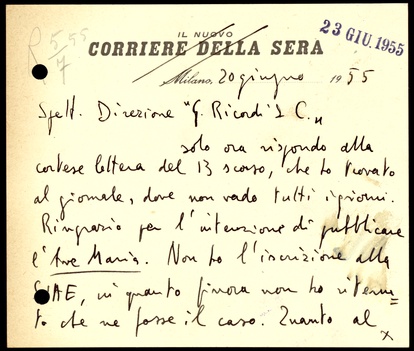 R 5/7 55
IL NUOVO
CORRIERE DELLA SERA
23 GIU. 1955
Milano, 20 giugno 1955
Spett. Direzione "G. Ricordi & C."
solo ora rispondo alla
cortese lettera del 13 scorso, che ho trovato
al giornale, dove non vado tutti i giorni.
Ringrazio per l'intenzione di pubblicare
l'Ave Maria. Non ho l'iscrizione alla
SIAE, in quanto finora non ho ritenu-
to che ne fosse il caso. Quanto al